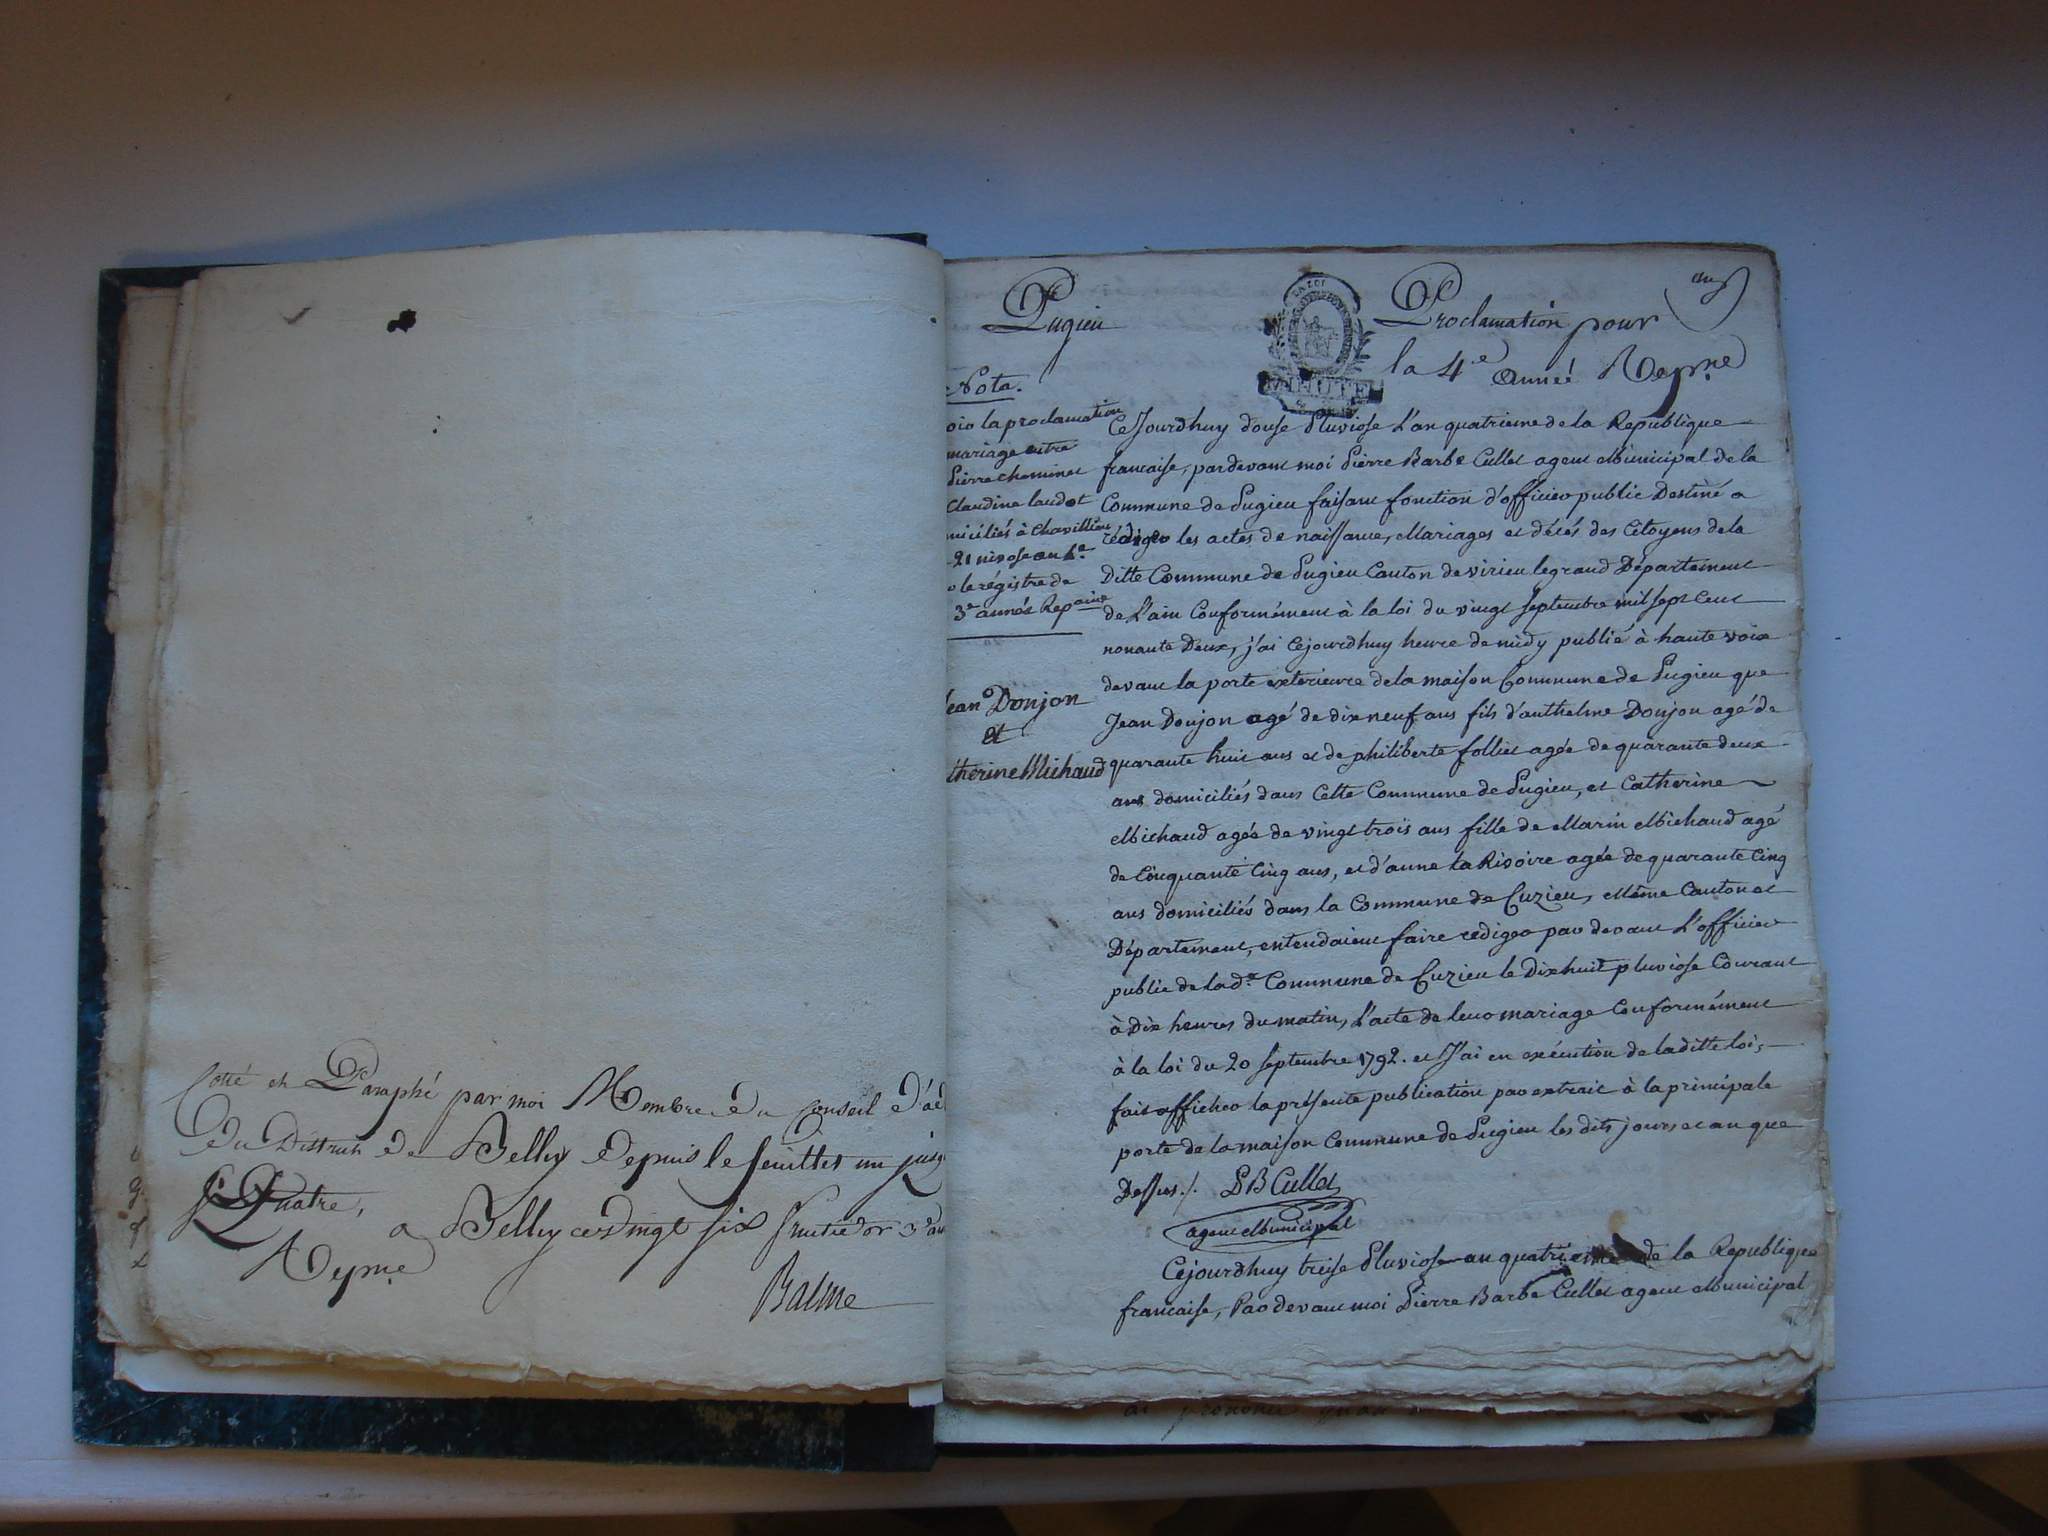 Cotté et Paraphé par moi Membre du Conseil d'ad
du District de Belley depuis le feuillet un jusq
Quatre,
a Belley ce vingt six fructidor 3e an
Repne
Balme
Pugieu
LA LOI
MINUTE
Proclamation pour
la 4e année Repne
un
Nota.
la proclamation
mariage entre
pierre cheminet
Claudine laudot
miciliés à Chavillieu
21 nivose an 4e
le régistre de
3e année Repaine
Jean Donjon
et
thérine Michaud
Cejourdhuy douse Pluviose L'an quatrieme de la Republique
francaise, pardevant moi Pierre Barbe Cullet agent Municipal de la
Commune de Pugieu faisant fonction d'officier public Destiné a
rédiger les actes de naissance, Mariages et décés des Citoyens de la
Ditte Commune de Pugieu Canton de virieu legrand Département
de L'ain Conformément à la loi du vingt septembre mil sept Cent
nonante Deux, j'ai Cejourdhuy heure de midy publié à haute voix
devant la porte exterieure de la maison Commune de Pugieu que
Jean Donjon agé de dix neuf ans fils d'anthelme Donjon agé de
quarante huit ans et de philiberte folliet agée de quarante deux
ans domiciliés dans Cette Commune de Pugieu, et Catherine
Michaud agée de vingt trois ans fille de Marin Michaud agé
de Cinquante Cinq ans, et d'anne la Rivoire agée de quarante Cinq
ans domiciliés dans la Commune de Cuzieu, Même Canton et
Département, entendaient faire rediger par devant L'officier
public de lade Commune de Cuzieu le Dix huit pluviose Courant
à Dix heures du matin, L'acte de leur mariage Conformément
à la loi du 20 septembre 1792. et J'ai en exécution de laditte loi,
fait afficher la présente publication par extrait à la principale
porte de la maison Commune de Pugieu les dits jours et an que
Dessus./. PB Cullet
agent Municipal
Cejourdhuy treise Pluviose an quatrieme de la Republique
francaise, Par devant moi Pierre Barbe Cullet agent Municipal